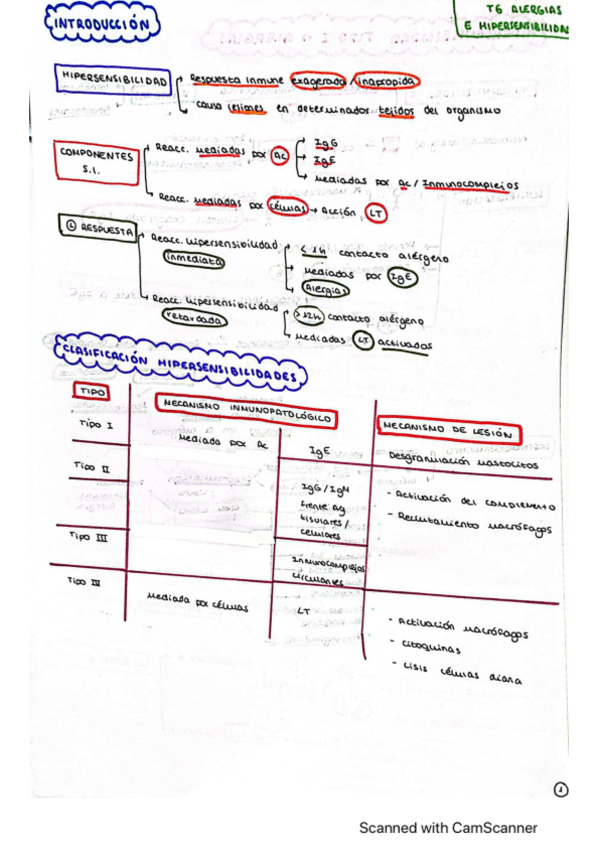 T6 ALERGIAS
E HIPERSENSIBILIDAD
INTRODUCCIÓN
HIPERSENSIBILIDAD
Respuesta inmune exagerada / inapropida
causa lesiones en determinados tejidos del organismo
COMPONENTES
S.I.
Reacc. mediadas por AC
IgG
IgE
mediadas por ac / Inmunocomplejos
Reacc. mediadas por células → Acción LT
RESPUESTA
Reacc. hipersensibilidad
inmediata
< 1h contacto alérgeno
mediadas por IgE
Alergias
Reacc. hipersensibilidad
retardada
>12h contacto alérgeno
mediadas LT activados
CLASIFICACIÓN HIPERSENSIBILIDADES
TIPO
MECANISMO INMUNOPATOLÓGICO
MECANISMO DE LESIÓN
Tipo I
mediada por Ac
IgE
Desgranulación mastocitos
Tipo II
IgG/IgM
frente Ag
tisulares/
celulares
- Activación del complemento
- Reclutamiento macrófagos
Tipo III
Inmunocomplejos
circulantes
Tipo III
mediada por células
LT
- Activación macrófagos
- citoquinas
- Lisis células diana
1
Scanned with CamScanner